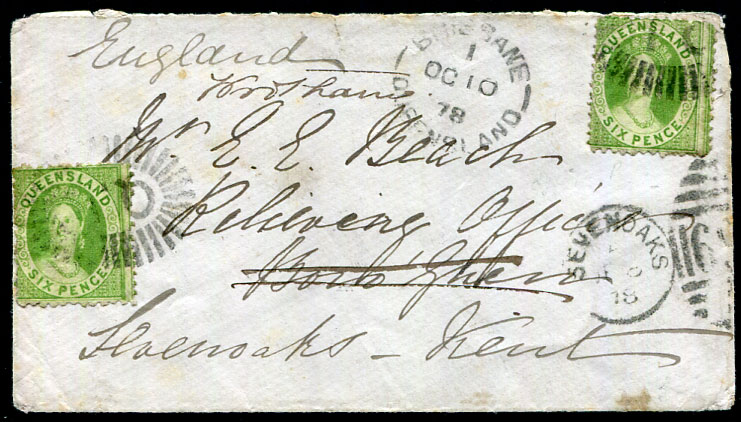 England
Wrotham
Mr E. E. Beach
Relieving Officer
Boro' Green
Sevenoaks - Kent
BRISBANE
1
OC 10
78
QUEENSLAND
QUEENSLAND
SIX PENCE
QUEENSLAND
SIX PENCE
SEVENOAKS
78